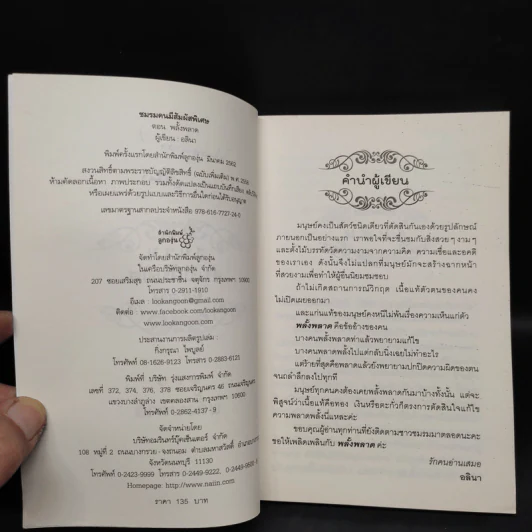 ชมรมคนมีสัมผัสพิเศษ
ตอน พลั้งพลาด
ผู้เขียน : อลินา
พิมพ์ครั้งแรกโดยสำนักพิมพ์ลูกองุ่น มีนาคม 2562
สงวนลิขสิทธิ์ตามพระราชบัญญัติลิขสิทธิ์ (ฉบับเพิ่มเติม) พ.ศ. 2558
ห้ามคัดลอกเนื้อหา ภาพประกอบ รวมทั้งดัดแปลงเป็นแถบบันทึกเสียง
หรือเผยแพร่ด้วยรูปแบบและวิธีการอื่นใดก่อนได้รับอนุญาต
เลขมาตรฐานสากลประจำหนังสือ 978-616-7727-24-0
สำนักพิมพ์
ลูกองุ่น
จัดทำโดยสำนักพิมพ์ลูกองุ่น
ในเครือบริษัทลูกองุ่น จำกัด
207 ซอยเสริมสุข ถนนประชาชื่น จตุจักร กรุงเทพฯ 10900
โทรสาร 0-2911-1910
อีเมล : lookangoon@gmail.com
ติดต่อ : www.facebook.com/lookangoon
www.lookangoon.com
ประสานงานการผลิตรูปเล่ม
กิ่งกรุณา ไพบูลย์
โทรศัพท์ 08-1626-9123 โทรสาร 0-2883-6121
พิมพ์ที่ บริษัท รุ่งแสงการพิมพ์ จำกัด
เลขที่ 372, 374, 376, 378 ซอยเจริญนคร 46 ถนนเจริญนคร
แขวงบางลำภูล่าง เขตคลองสาน กรุงเทพฯ 10600
โทรศัพท์ 0-2862-4137-9
จัดจำหน่ายโดย
บริษัทอมรินทร์บุ๊คเซ็นเตอร์ จำกัด
108 หมู่ที่ 2 ถนนบางกรวย-จงถนอม ตำบลมหาสวัสดิ์
จังหวัดนนทบุรี 11130
โทรศัพท์ 0-2423-9999 โทรสาร 0-2449-9222,
Homepage: http://www.naiin.com
ราคา 135 บาท
คำนำผู้เขียน
มนุษย์คงเป็นสัตว์ชนิดเดียวที่ตัดสินกันเองด้วยรูปลักษณ์
ภายนอกเป็นอย่างแรก เราพอใจที่จะชื่นชมกับสิ่งสวย ๆ งาม ๆ
และตั้งไม้บรรทัดวัดความงามจากความคิด ความเชื่อและอคติ
ของเราเอง ดังนั้นจึงไม่แปลกที่มนุษย์มักจะสร้างฉากหน้า
ที่สวยงามเพื่อทำให้ผู้อื่นนิยมชมชอบ
ถ้าไม่เกิดสถานการณ์วิกฤต เนื้อแท้ตัวตนของคนคง
ไม่เปิดเผยออกมา
และแก่นแท้ของมนุษย์คงหนีไม่พ้นเรื่องความเห็นแก่ตัว
พลั้งพลาด คือข้ออ้างของคน
บางคนพลั้งพลาดทำแล้วพยายามแก้ไข
บางคนพลาดพลั้งไปแต่กลับนิ่งเฉยไม่ทำอะไร
แต่ร้ายที่สุดคือพลาดแล้วยังพยายามปกปิดความผิดของตน
จนถลำลึกลงไปทุกที
มนุษย์ทุกคนคงต้องเคยพลั้งพลาดกันมาบ้างทั้งนั้น แต่จะ
พิสูจน์ว่าเนื้อแท้คือทอง เงินหรือตะกั่วก็ตรงการตัดสินใจแก้ไข
ความพลาดพลั้งนี่แหละค่ะ
ขอบคุณผู้อ่านทุกท่านที่ยังติดตามชาวชมรมมาตลอดนะคะ
ขอให้เพลิดเพลินกับ พลั้งพลาด ค่ะ
รักคนอ่านเสมอ
อลินา